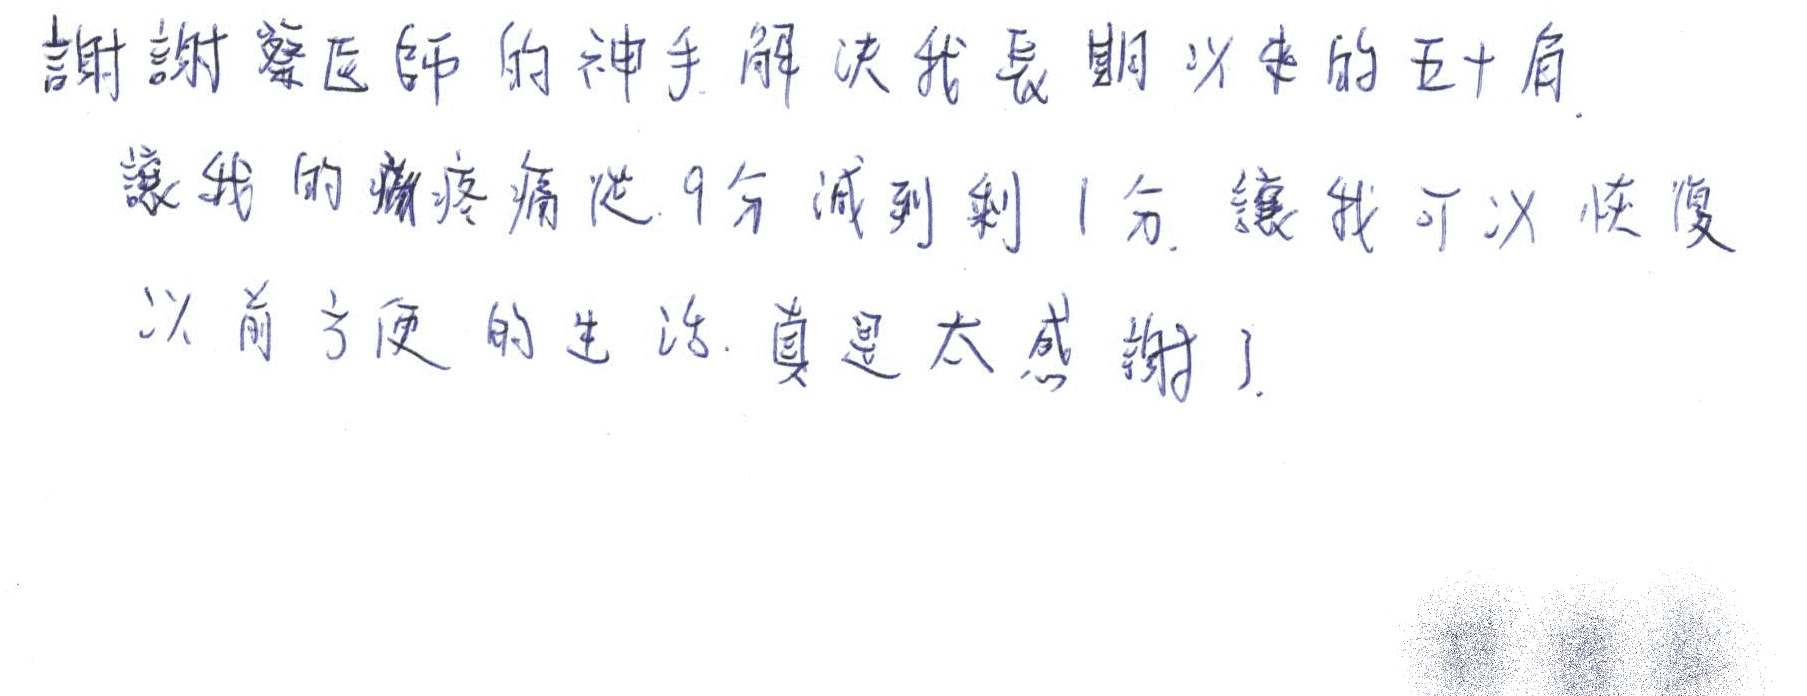 謝謝蔡医師的神手解決我長期以來的五十肩.
讓我的疼痛從9分減到剩1分.讓我可以恢復
以前方便的生活.真是太感謝了.